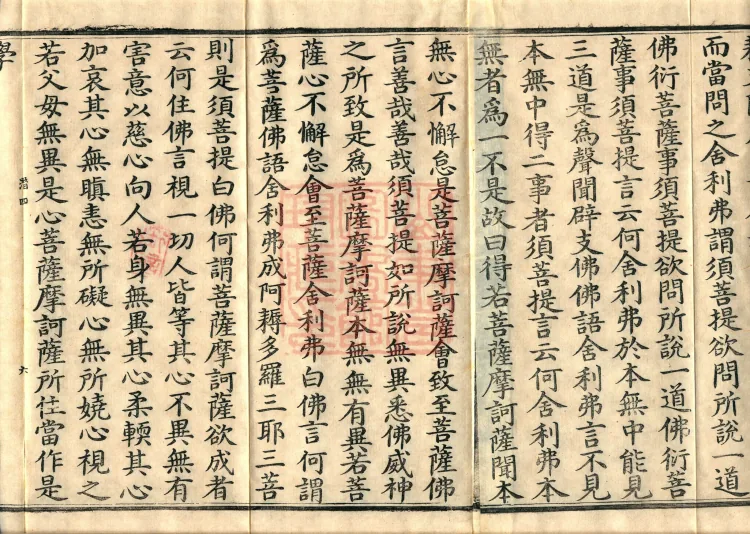 而當問之舍利弗謂須菩提欲問所說一道
佛衍菩薩事須菩提欲問所說一道佛衍菩
薩事須菩提言云何舍利弗於本無中能見
三道是爲聲聞辟支佛佛語舍利弗言不見
本無中得二事者須菩提言云何舍利弗本
無者爲一不是故曰得若菩薩摩訶薩聞本
無心不懈怠是菩薩摩訶薩會致至菩薩佛
言善哉善哉須菩提如所說無異悉佛威神
之所致是爲菩薩摩訶薩本無無有異若菩
薩心不懈怠會至菩薩舍利弗白佛言何謂
爲菩薩佛語舍利弗成阿耨多羅三耶三菩
則是須菩提白佛何謂菩薩摩訶薩欲成者
云何住佛言視一切人皆等其心不異無有
害意以慈心向人若身無異其心柔輭其心
加哀其心無瞋恚無所礙心無所嬈心視之
若父母無異是心菩薩摩訶薩所住當作是
學
潜四
六